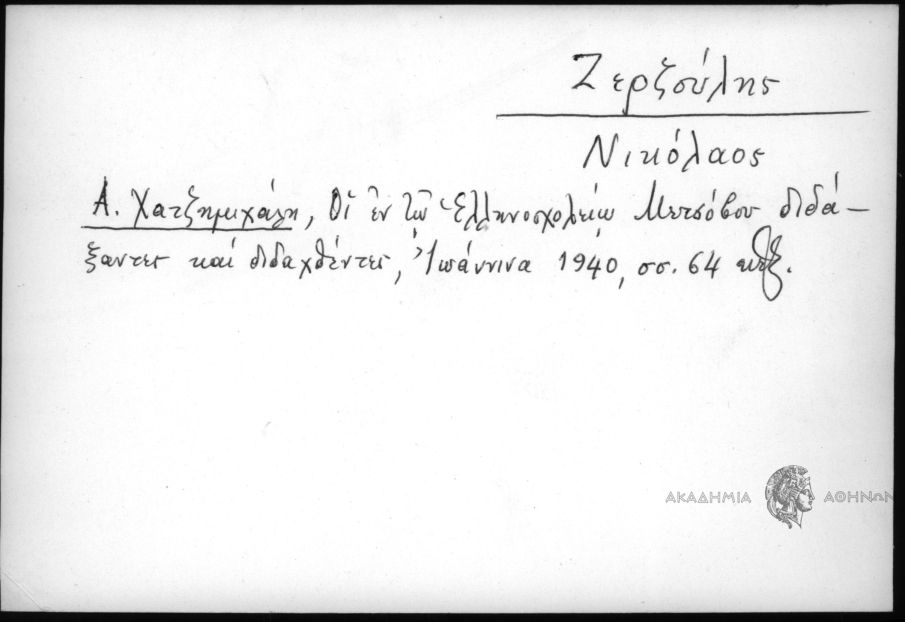 Ζερζούλης
Νικόλαος
Α. Χατζημιχάλη, Οἱ ἐν τῷ Ἑλληνοσχολείῳ Μετσόβου διδά-
ξαντες καί διδαχθέντες, Ἰωάννινα 1940, σσ. 64
ΑΚΑΔΗΜΙΑ ΑΘΗΝΩΝ